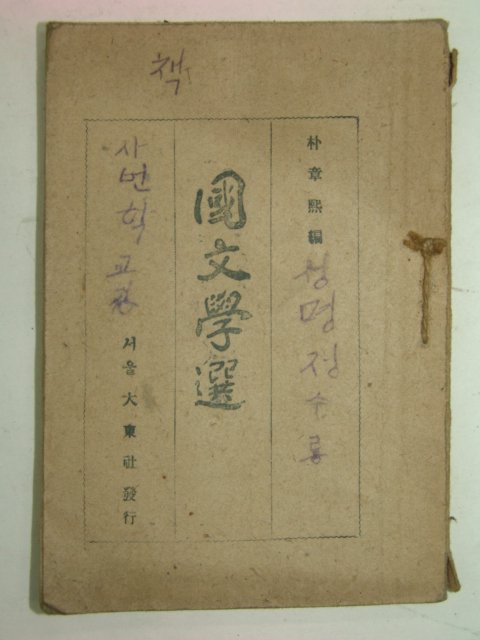 책
朴章熙編
성명 정수룡
國文學選
사번학교
서울 大東社發行